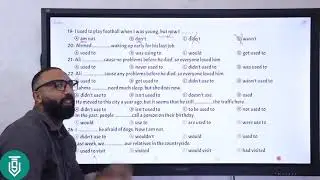 19- I used to play football when I was young, but now I
a) am not b) don't c) didn't d) wasn't
20. Ahmed ............ waking up early for his last job.
used to was using to would got used to
21. Ali ............ cause no problems before he died, so everyone loved him
used to didn't use to wasn't used to was used to
22. Ali ............ cause any problems before he died, so everyone loved him
used to didn't use to used to wasn't used to
need much sleep, but she does now.
didn't use to isn't used to doesn't used
He moved to this city a year ago, but it seems that he still ............ the traffic here
didn't use to isn't used to to be used to not used to
In the past, people ............ call a person on their birthday.
would use to are used to were used to
I ............ be afraid of dogs. Now I am not.
didn't use to wouldn't would used to
Last week, we ............ our relatives in the countryside.
used to visit visited would visit had visited